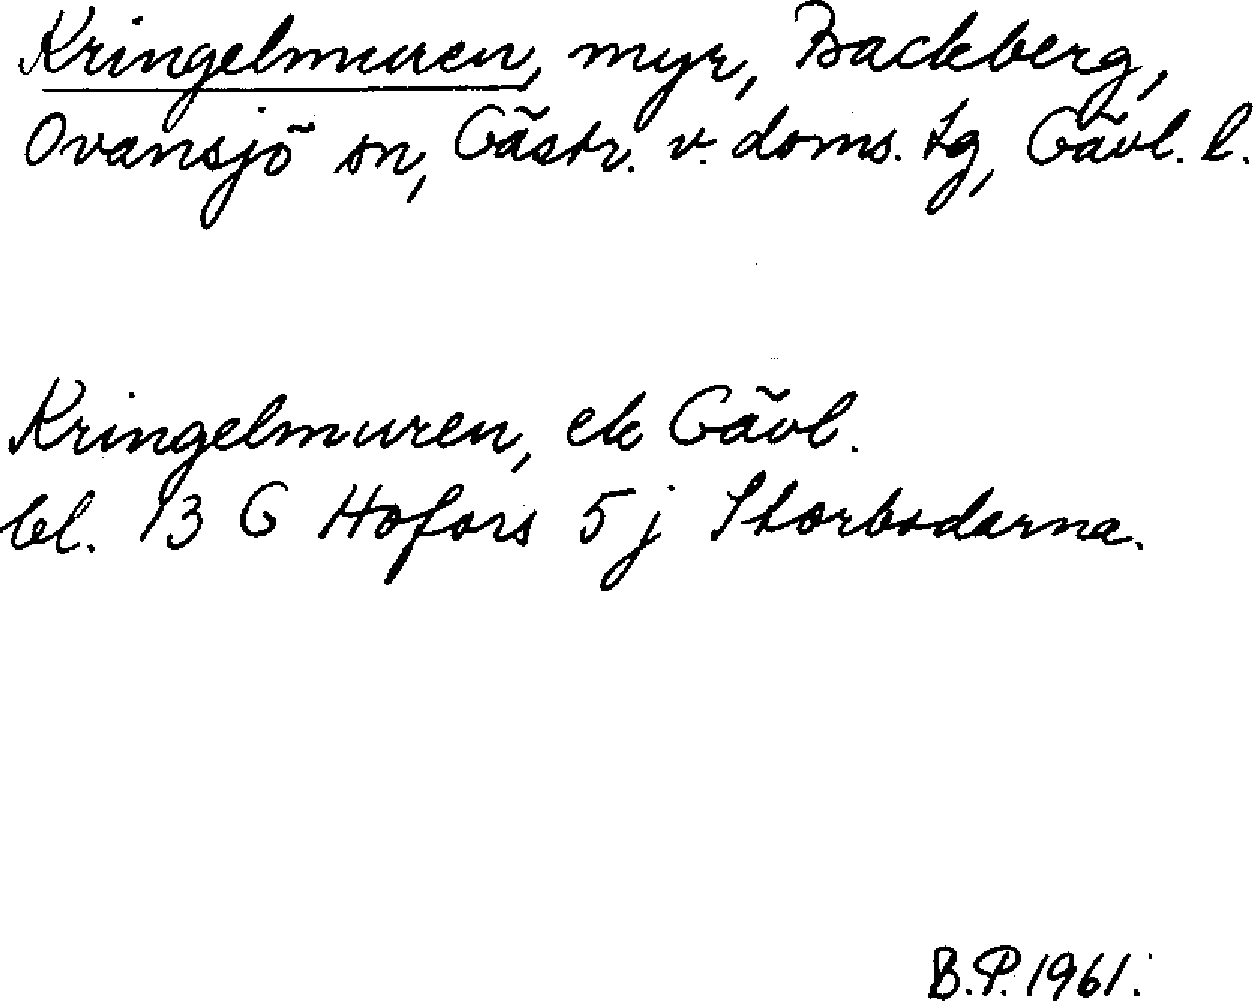 Kringelmuren, myr, Backberg,
Ovansjö sn, Gästr. v. doms. tg, Gävl. l.
Kringelmuren, ek Gävl.
bl. 13 G Hofors 5 j Storbodarna.
B.P. 1961.